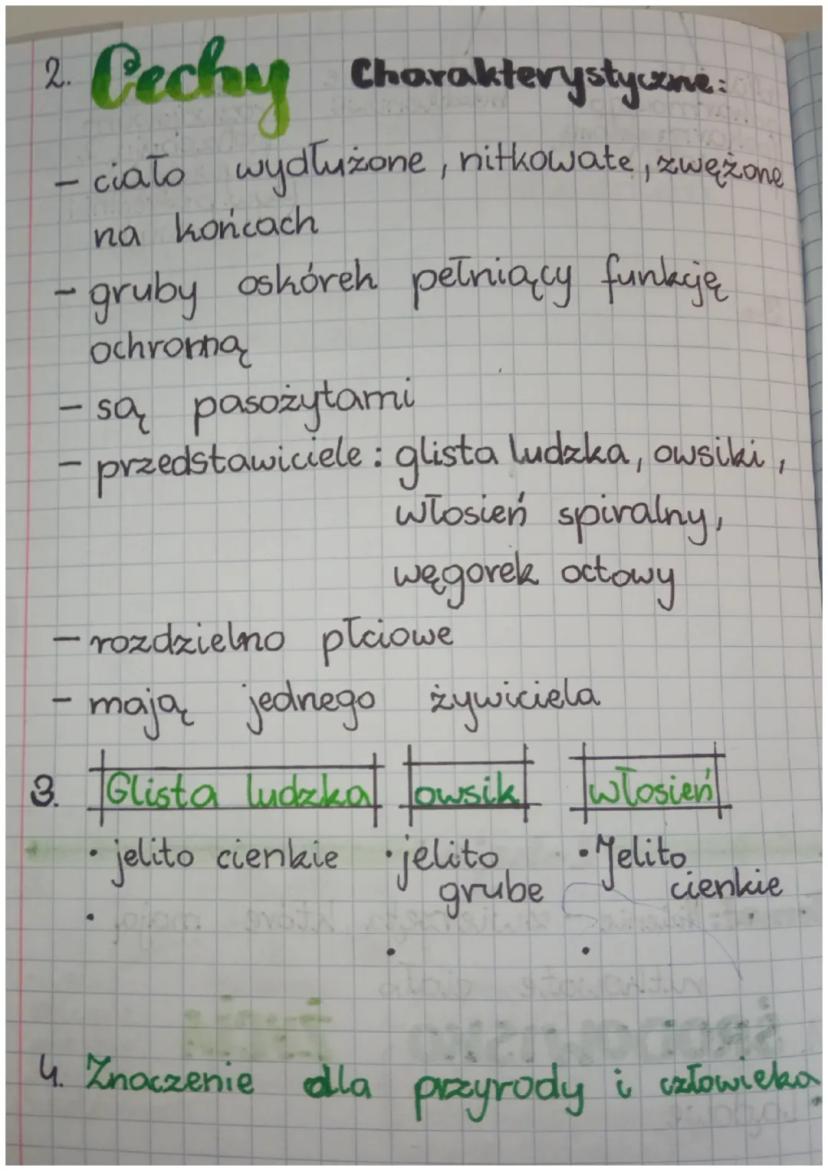 2. Cechy Charakterystyczne:
- ciało wydłużone, nitkowate, zwężone
na końcach
- gruby oskórek pełniący funkcję
ochronną
- są pasożytami
- przedstawiciele: glista ludzka, owsiki,
włosień spiralny,
węgorek octowy
- rozdzielno płciowe
- mają jednego żywiciela
3. Glista ludzka owsik włosień
• jelito cienkie • jelito grube • Jelito cienkie
4. Znaczenie dla przyrody i człowieka